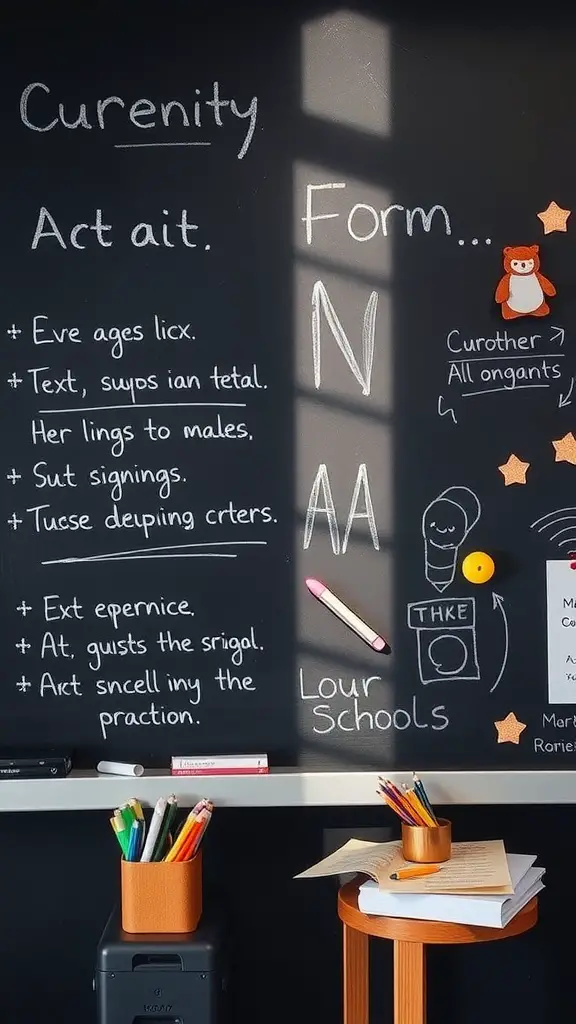 Curenity
Act ait.
+ Eve ages licx.
+ Text, suyos ian tetal.
Her lings to males.
+ Sut signings.
+ Tucse deyping crters.
+ Ext epernice.
+ At, gusts the srigal.
+ Art sncell iny the
praction.
Form...
N
AA
Lour
Schools
Curother
All ongants
THKE
Mart
Rorie